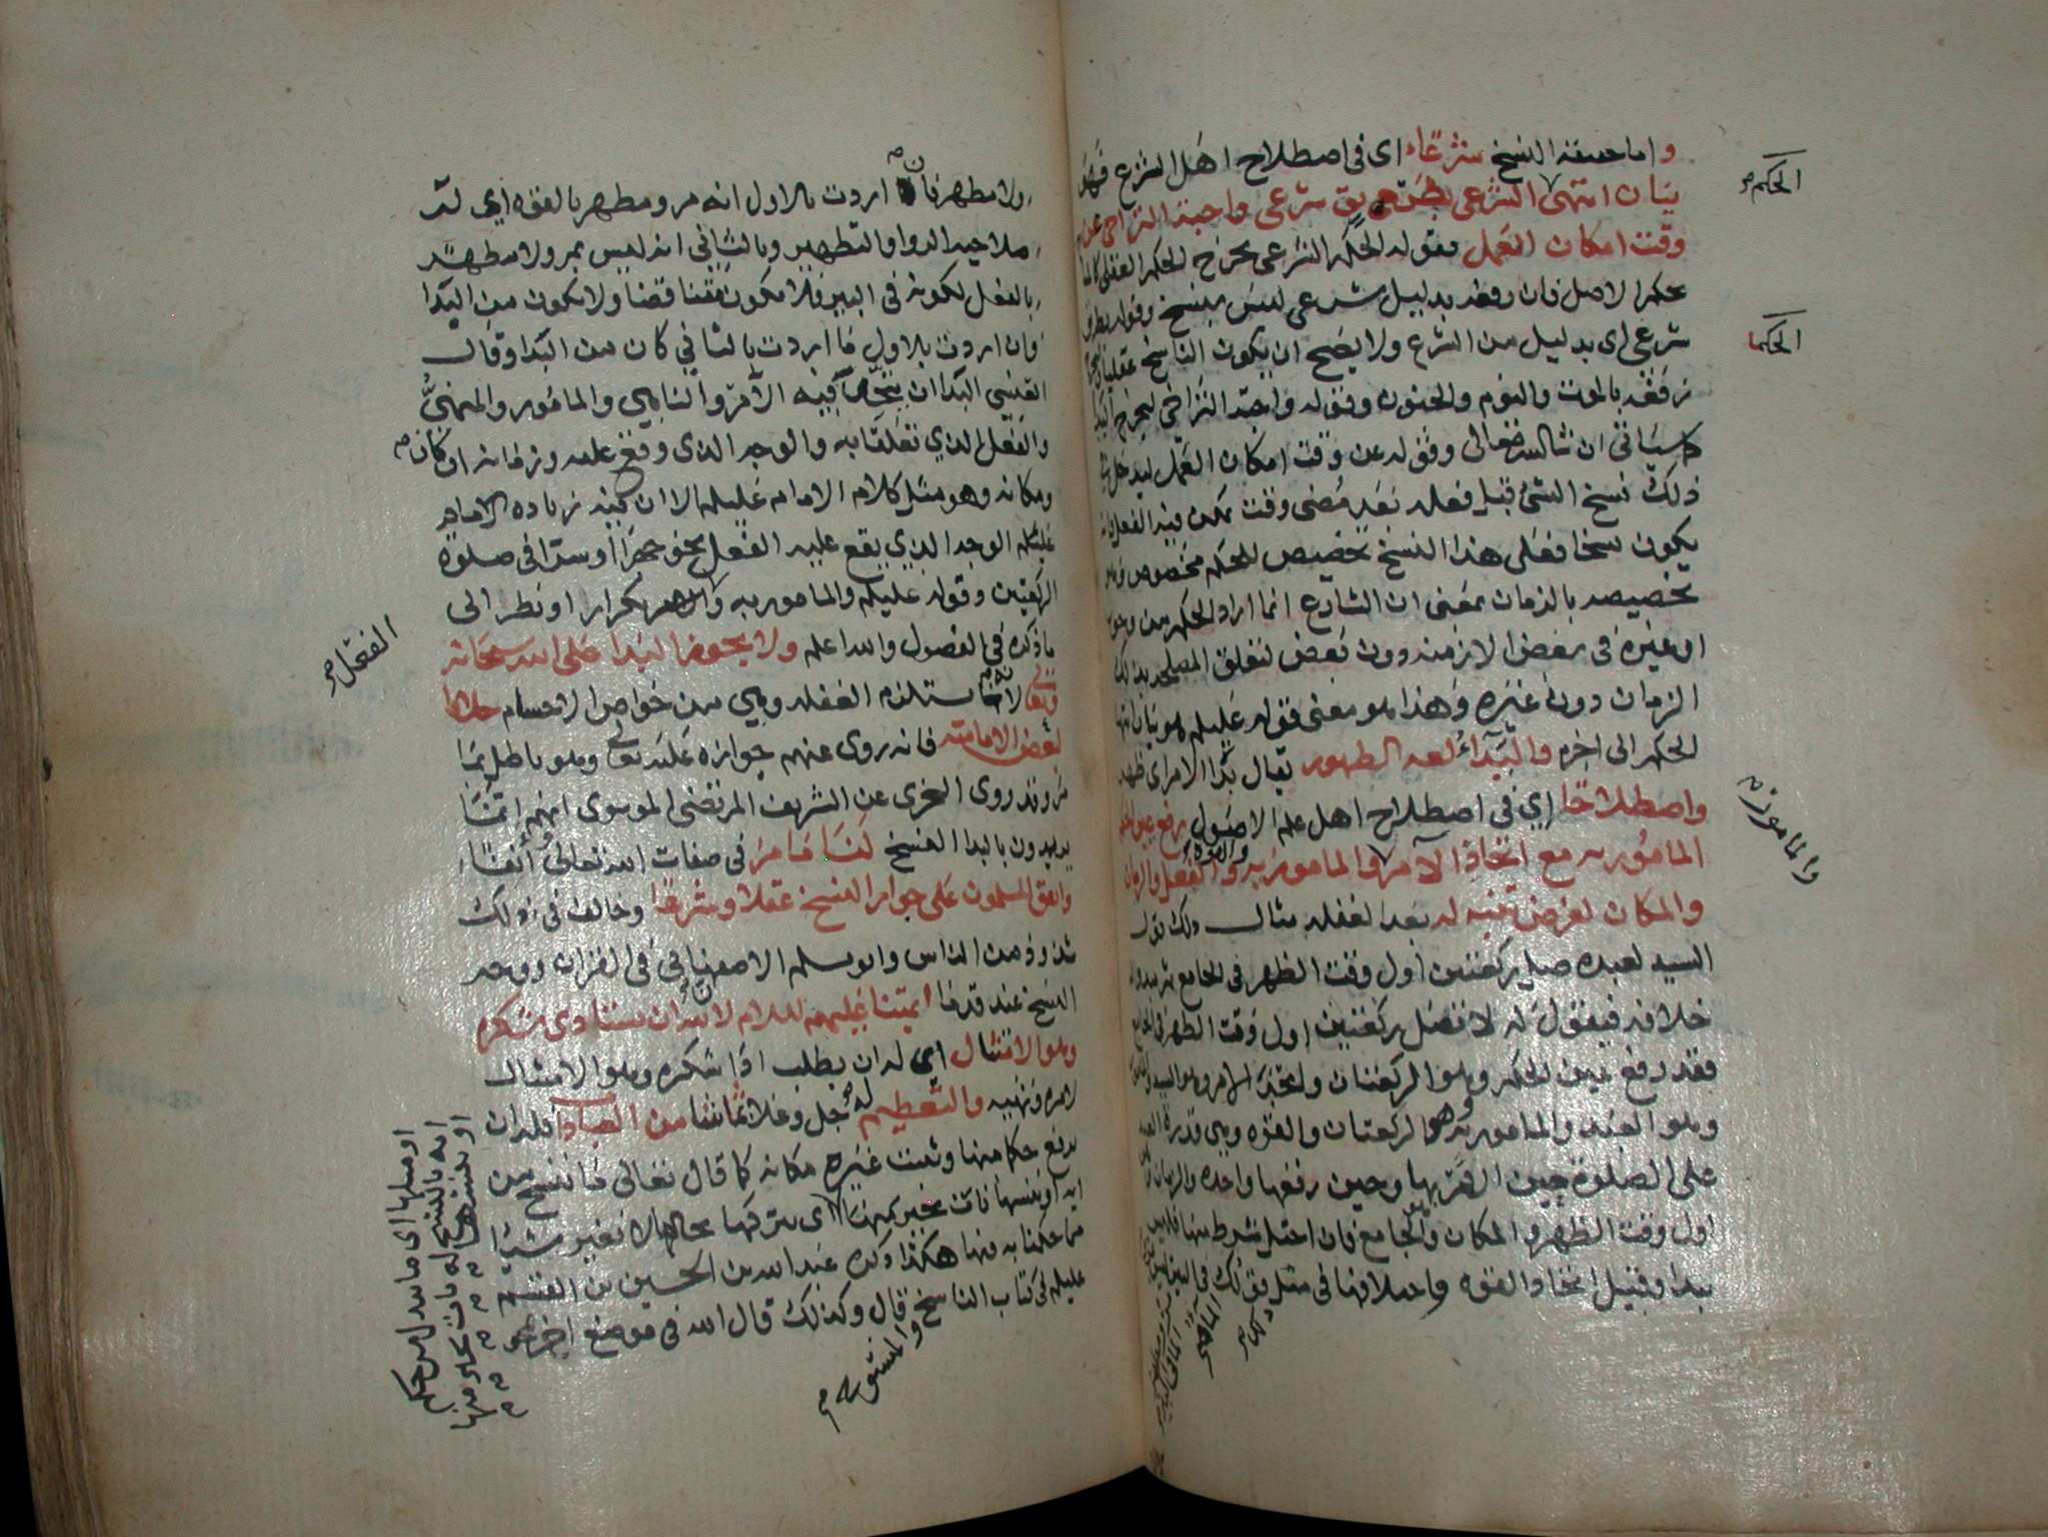 واما حقيقة النسخ شرعًا اى فى اصطلاح اهل الشرع فهو
بيان انتهى الشرعى بطريق شرعى واجبة التراخى عن
وقت امكان العمل فقوله الحكم الشرعى يخرج الحكم العقلى
بحكم الاصل فان رفعه بدليل شرعى ليس بنسخ وقوله بطريق
شرعى اى بدليل من الشرع ولا يصح ان يكون الناسخ عقليا
رفعه بالموت والنوم والجنون وقوله واجبة التراخى ليخرج البدا
كما سياتى ان شا الله تعالى وقوله عن وقت امكان العمل ليدخل
ذلك نسخ الشئ قبل فعله بعد مضى وقت يمكن فيه الفعل فانه
يكون نسخا فعلى هذا النسخ تخصيص للحكم مخصوص
تخصيصه بالزمان بمعنى ان الشارع انما اراد الحكم من
او غيره فى بعض الازمنه دون بعض لتعلق المصلحه بذلك
الزمان دون غيره وهذا هو معنى قوله عليلم هو بيان انتها
الحكم الى اخره والبدآء لغة الظهور يقال بدا الامر اى ظهر
واصطلاحا اى فى اصطلاح اهل علم الاصول رفع عين الحكم
المامور به مع اتحاد الآمر والمامور به والقوه والفعل والزمان
والمكان لغرض تنبه له بعد الغفله مثال ذلك قول
السيد لعبده صل ركعتين اول وقت الظهر فى الجامع ثم يبدو له
خلافه فيقول له لا تصل ركعتين اول وقت الظهر فى الجامع
فقد رفع عين الحكم وهو الركعتان واتحد الامر وهو السيد
وهو العبد والمامور به وهو الركعتان والقوه وهى قدرة العبد
على الصلوة حين امر بها وحين رفعها واحده والزمان
اول وقت الظهر والمكان وهو الجامع فان اختل شرط منها فليس
ببدا وقيل اتحاد القوه واختلافها فى مثل قولك فى
الحكم
الحكما
والمامور
ولا مطهر فان اردت بالاول انه مرو ومطهر بالقوه اى
صلاحيه الدوا والتطهير وبالثانى انه ليس بمرو ولا مطهر
بالفعل لكونه فى البير فلا يكون تناقضا ولا يكون من البدا
وان اردت بالاول ما اردت بالثانى كان من البدا وقال
القتيبى البدا ان يتحد فيه الآمر والناهى والمامور والمنهى
والفعل الذى تعلقا به والوجه الذى وقع عليه وزمانه ان كان
ومكانه وهو مثل كلام الامام عليلم الا ان فيه زياده الامام
عليلم الوجه الذى يقع عليه الفعل نحو جهرًا او سرًا فى صلوة
الركعتين وقوله عليلم والمامور به والامر تكرار او نظر الى
ما ذكره فى الفصول والله اعلم ولا يجوز البدا على الله سبحانه
وتعالى لانه يستلزم الغفله وهى من خواص الاجسام خلافا
لبعض الاماميه فانه روى عنهم جوازه عليه تعالى وهو باطل بما
مر وقد روى عن الشريف المرتضى الموسوى انهم انما
يريدون بالبدا النسخ لنا ما مر فى صفات الله تعالى آنفا
واتفق المسلمون على جواز النسخ عقلا وشرعا وخالف فى ذلك
شذوذ من الناس وابو مسلم الاصفهانى فى القران ووجه
النسخ عند قدما ايمتنا عليهم السلام لان لله ان يستادى شكره
وهو الامتثال اى له ان يطلب ادا شكره وهو الامتثال
لامره ونهيه والتعظيم له جل وعلا بما شا من العباد فله ان
يرفع حكما منها ويثبت غيره مكانه كما قال تعالى ما ننسخ من
ايه او ننسها نات بخير منها اى نتركها بحالها لا نغير شيئا
مما حكمنا به فيها هكذا ذكره عبد الله بن الحسين بن القسم
عليلم فى كتاب الناسخ والمنسوخ قال وكذلك قال الله فى موضع اخر
الفعل
او مثلها اى ما نبدل من حكم